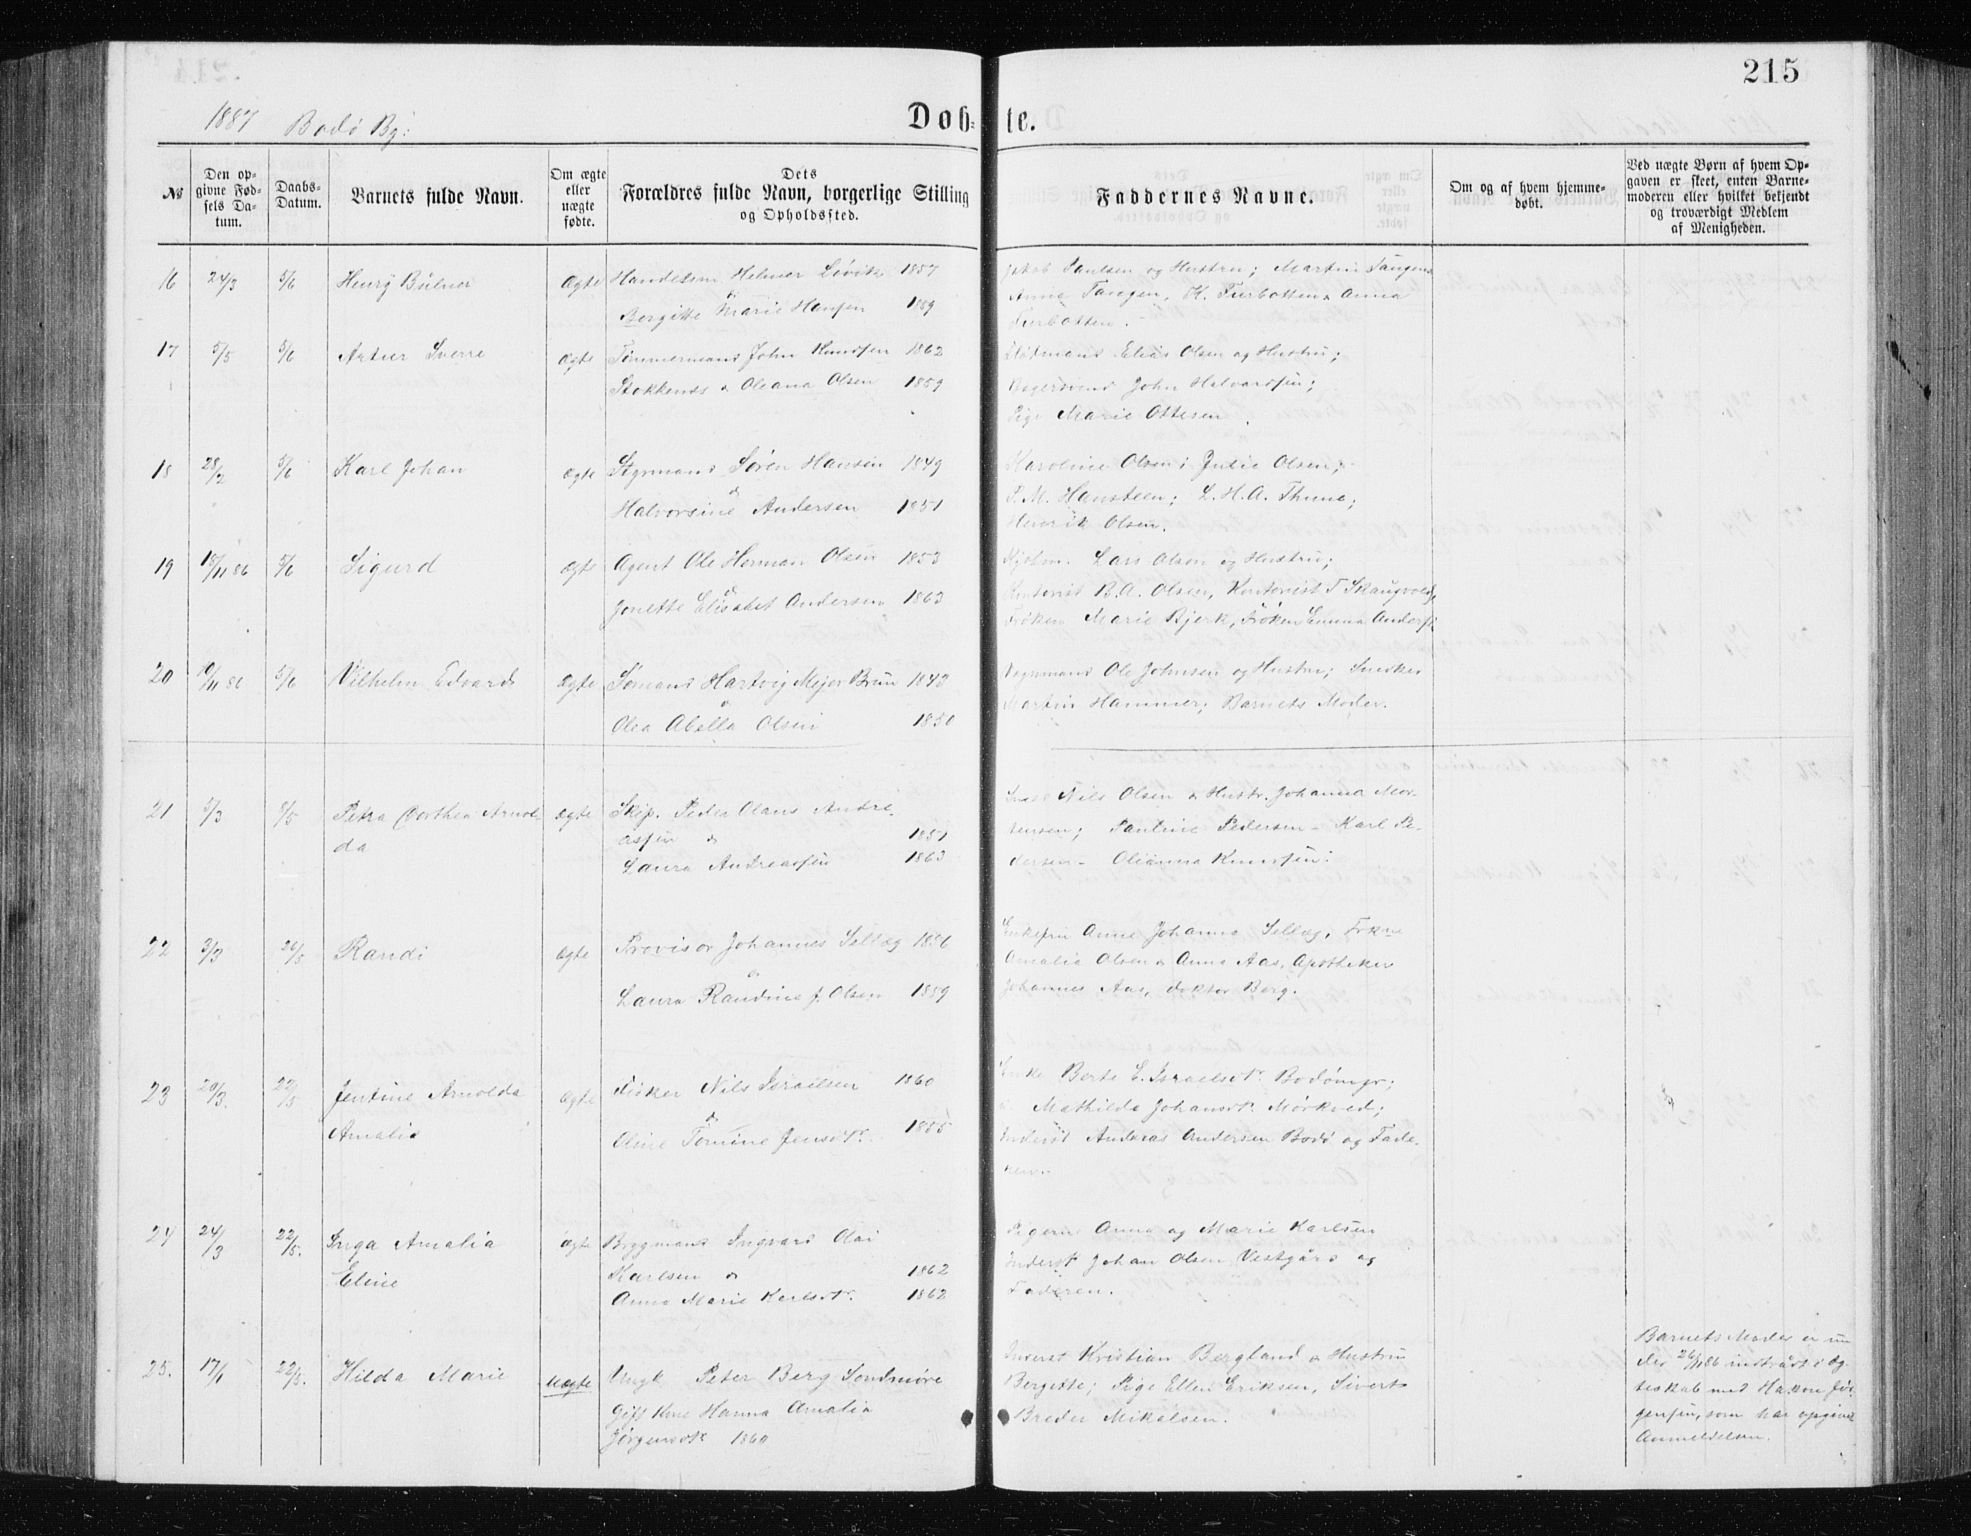 215
1887 Bodø By:
Døb-te.
№
Den op-
givne Fød-
sels Da-
tum.
Daabs-
Datum.
Barnets fulde Navn.
Om ægte
eller
uægte
fødte.
Dets
Forældres fulde Navn, borgerlige Stilling
og Opholdssted.
Faddernes Navne.
Om og af hvem hjemme-
døbt.
Ved uægte Børn af hvem Op-
gaven er skeet, enten Barne-
moderen eller hvilket bekjendt
og troværdigt Medlem
af Menigheden.
16 24/3 5/6 Henry Bülner Ægte Handelsm Helmer Løvik 1857
& Bergitte Marie Hansen 1859
Jakob Paulsen og Hustru; Martin Tangen
Anna Tangen, K. Turbotten & Anna
Turbotten.
17 5/5 5/6 Artur Sverre ægte Tømmermand John Knudsen 1862
Stokkenes & Oleana Olsen 1859
Elias Olsen og Hustru;
John Halvorsen;
Pige Marie Ottesen
18 28/2 5/6 Karl Johan ægte Styrmand Søren Hansen 1849
& Halvorsine Andersen 1851
Karoline Olsen; Julie Olsen;
T. M. Hansteen; L. H. A. Thune;
Henrik Olsen.
19 18/11 86 5/6 Sigurd ægte Agent Ole Herman Olsen 1853
& Jonette Elisabet Andersen 1863
Kjøbm. Lars Olsen og Hustru;
Kontorist B. A. Olsen, Kontorist T Skaugvold,
Frøken Marie Bjerk, Frøken Emma Anders
20 10/11 86 5/6 Vilhelm Edvard Ægte Sømand Hartvig Mejer Brun 1843
& Olea Abella Olsen 1850
Vognmand Ole Johnsen og Hustru; Snedker
Martin Hammer; Barnets Moder.
21 5/3 8/5 Petra Dorthea Arnol-
da
ægte Skip. Peder Olaus Andre-
assen & 1851
Laura Andreassen 1863
Nils Olsen & Hustr. Johanna Mor-
tensen; Pauline Pedersen - Karl Pe-
dersen - Olianna Knudsen:
22 3/3 26/5 Randi Ægte Provisor Johannes Sellæg 1856
& Laura Randine J. Olsen 1859
Enkefru Anne Johanna Sellæg, Frkne
Amalia Olsen & Anna Aas, Apotheker
Johannes Aas, doktor Berg.
23 20/3. 22/5 Jentine Arnolda
Amalia
Ægte Fisker Nils Israelsen 1860
& Eline Tomine Jensdtr. 1855
Enke Berte E. Israelsdtr. Bodømyr;
Mathilde Johansdtr. Mørkved;
Inderst Andreas Andersen Bodø og Fade-
ren.
24 24/3 22/5. Inga Amalia
Eline
Ægte Bryggmand Ingvard Olai
Karlsen & 1862
Anna Marie Karlsdtr. 1862
Pigerne Anna og Marie Karlsen
Inderst Johan Olsen Vestgård og
Faderen.
25. 17/1 22/5. Hilda Marie Uægte Ungk Peter Berg Søndmøre
Gift Kone Hanna Amalia
Jørgensdtr 1860
Inderst Kristian Bergland & Hustru
Bergitte; Pige Ellen Eriksen, Sivert
Breder Mikalsen.
Barnets Moder er un
der 26/11 86 indtrådt i Æg-
teskab med Hakon Jør
gensen, som har opgivet
Anmeldelsen.